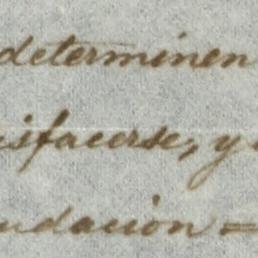 determinen
isfacerse, y
udacion =